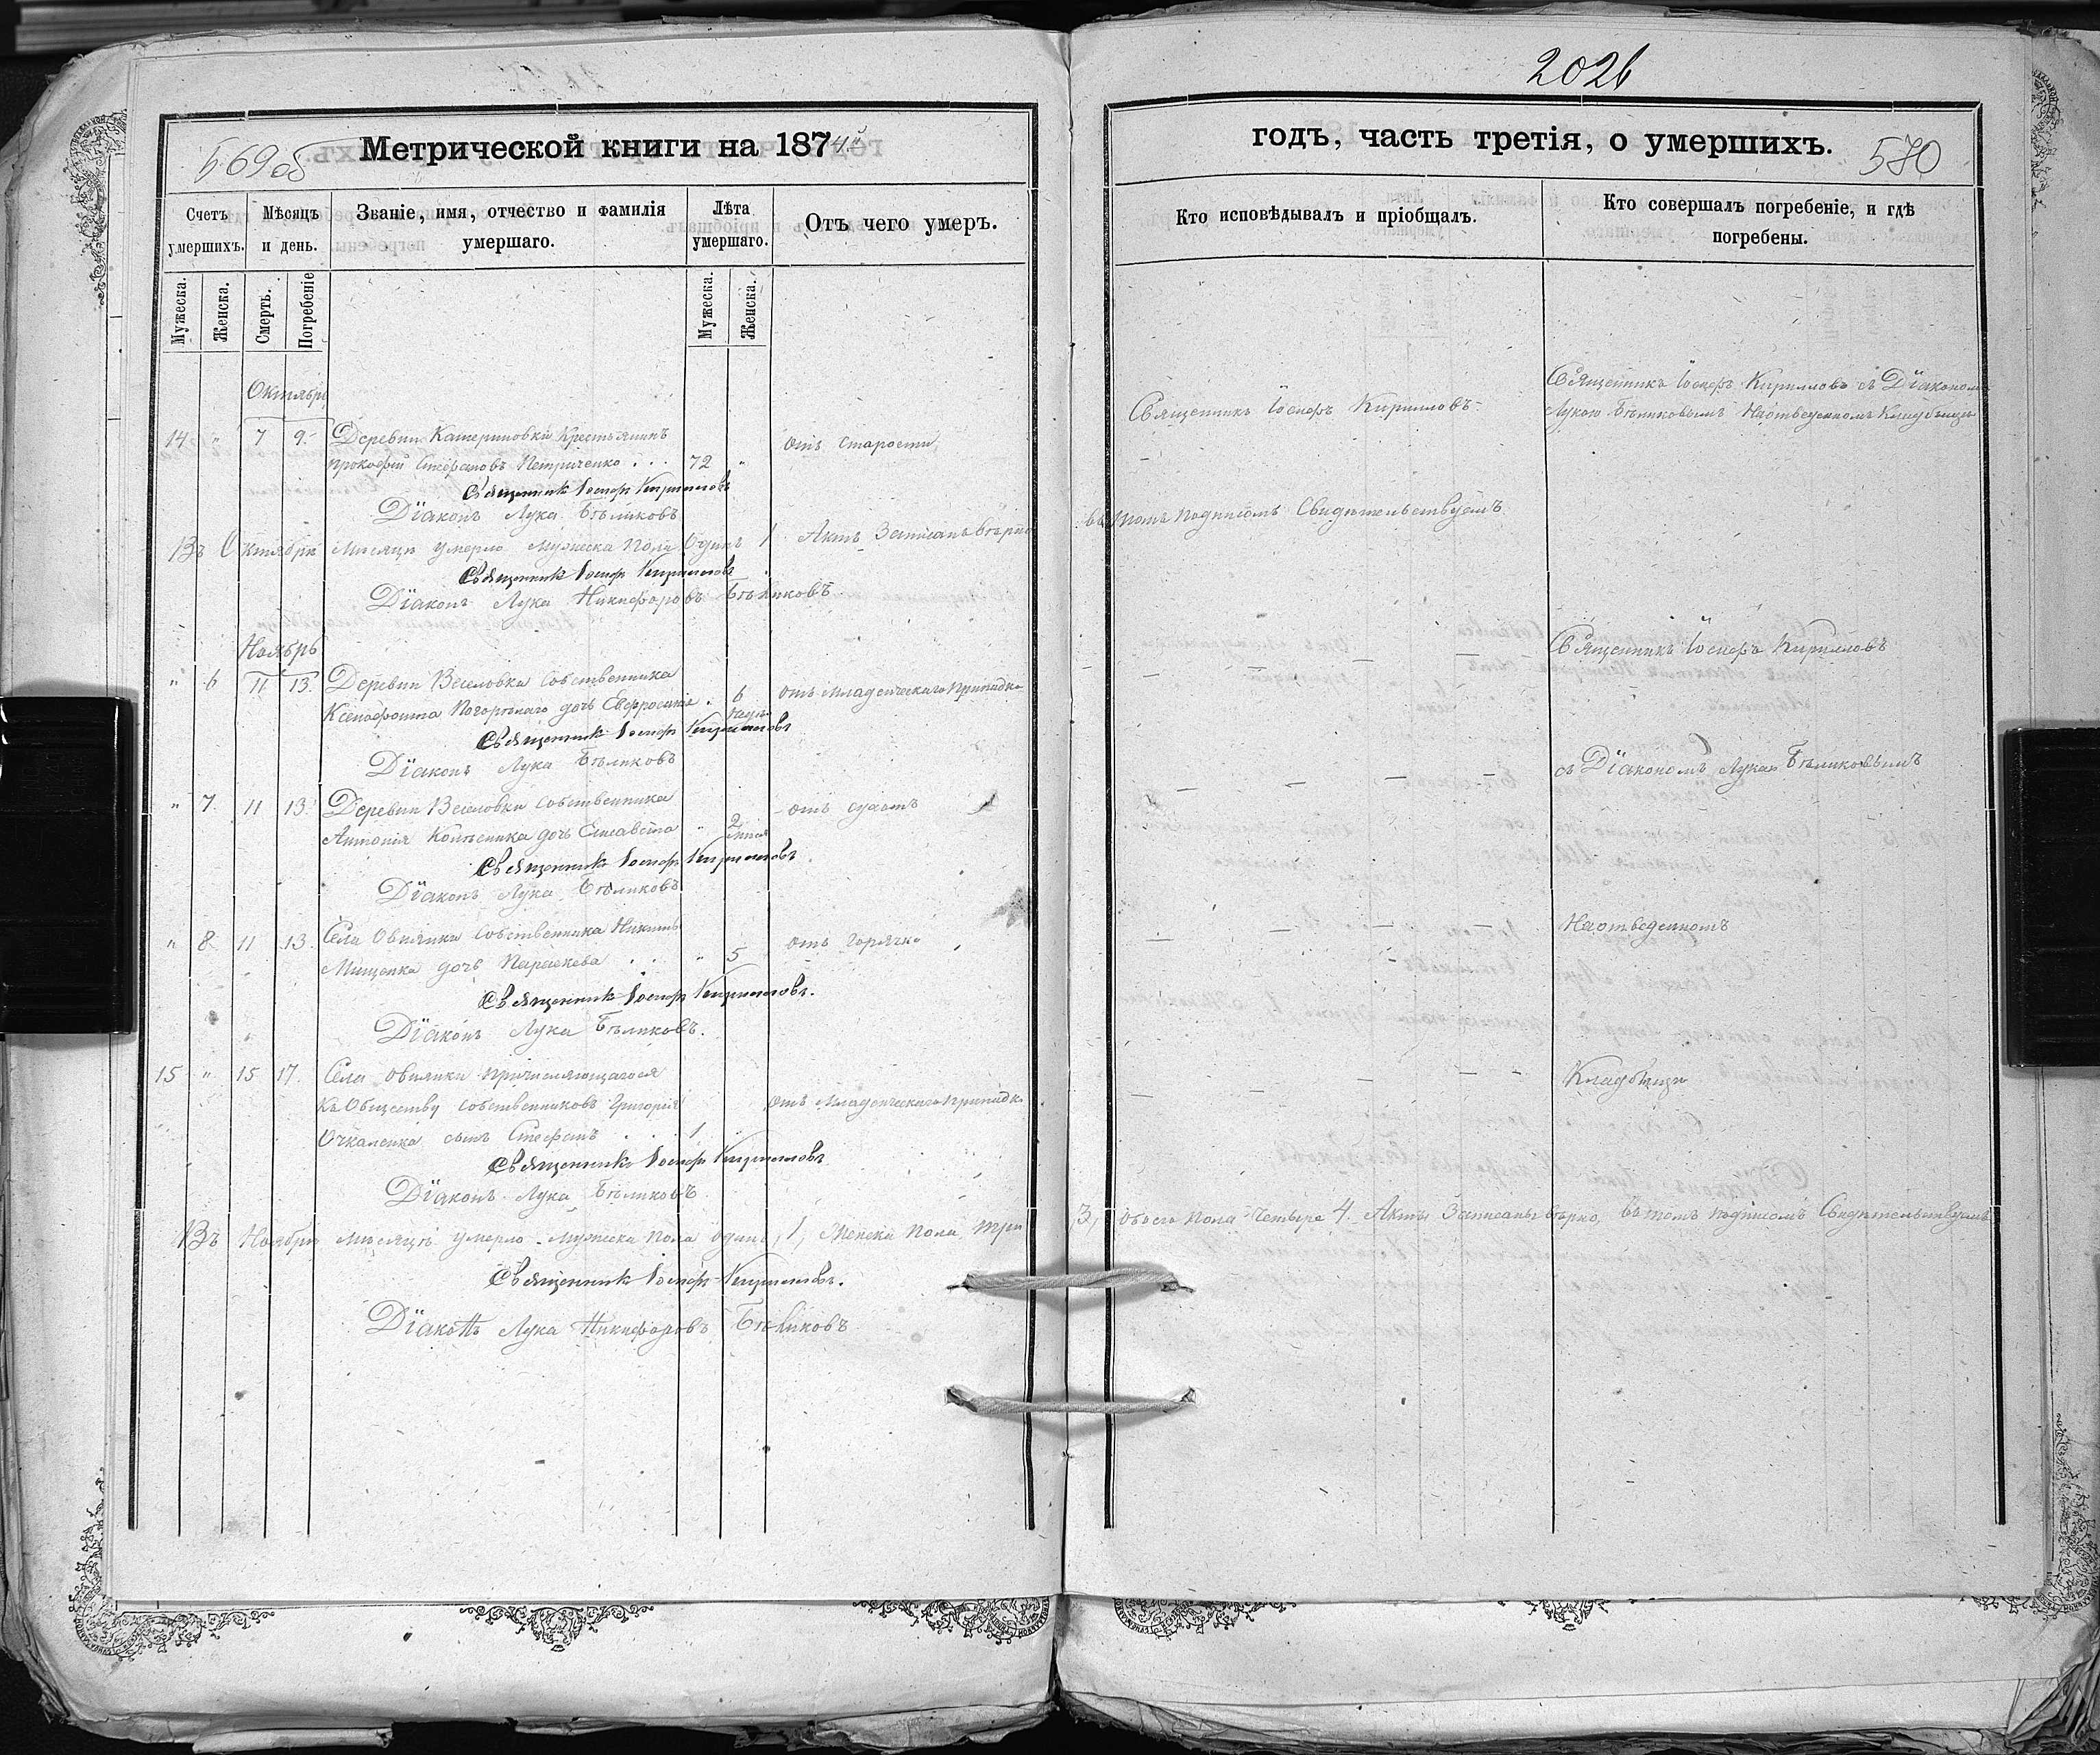 2026
569об
Метрической книги на 1874й
годъ, часть третія, о умершихъ.
570
Счетъ умершихъ.
Мѣсяцъ и день.
Званіе, имя, отчество и фамилія умершаго.
Лѣта умершаго.
Отъ чего умеръ.
Кто исповѣдывалъ и пріобщалъ.
Кто совершалъ погребеніе, и гдѣ погребены.
Мужеска.
Женска.
Смерть.
Погребеніе
Мужеска.
Женска.
Октябрь
14 " 7 9. Деревни Катериновки Крестьянинъ
Прокофій Стефановъ Петриченко . . . 72 "
отъ старости
Священникъ Іосифъ Кирилловъ
Священникъ Іосифъ Кирилловъ съ Діакономъ
Лукою Бѣликовымъ На отведенномъ Кладбищѣ
Священникъ Іосифъ Кирилловъ
Діаконъ Лука Бѣликовъ
Въ Октябрѣ Мѣсяцѣ умерло мужеска пола Одинъ 1 Актъ Записанъ вѣрно
въ томъ подписомъ Свидѣтельствуемъ
Священникъ Іосифъ Кирилловъ
Діаконъ Лука Никифоровъ Бѣликовъ
Ноябрь
" 6 11 13. Деревни Веселовки собственника
Ксенофонта Погорѣлаго дочь Евфросинія . 6
отъ младенческаго припадка
Священникъ Іосифъ Кирилловъ
Священникъ Іосифъ Кирилловъ
Діаконъ Лука Бѣликовъ
съ Діакономъ Лукою Бѣликовымъ
" 7. 11 13. Деревни Веселовки собственника
Антонія Колѣсника дочь Елисавета " 2
отъ сухотъ
Священникъ Іосифъ Кирилловъ
Діаконъ Лука Бѣликовъ
" 8. 11 13. Села Овнянки собственника Никиты
Мищенка дочь Параскева . . " 5
отъ горячки
На отведенномъ
Священникъ Іосифъ Кирилловъ.
Діаконъ Лука Бѣликовъ.
15 " 15 17. Села Овнянки причисляющагося
къ Обществу собственниковъ Григорія
Очкаленка сынъ Стефанъ . . . 1
отъ младенческаго припадка
Кладбищѣ
Священникъ Іосифъ Кирилловъ
Діаконъ Лука Бѣликовъ
Въ Ноябрѣ мѣсяцѣ умерло мужеска пола одинъ, 1, женска пола три
3, обоего пола Четыре 4. Акты Записаны вѣрно, въ томъ подписомъ Свидѣтельствуемъ
Священникъ Іосифъ Кирилловъ.
Діаконъ Лука Никифоровъ Бѣликовъ